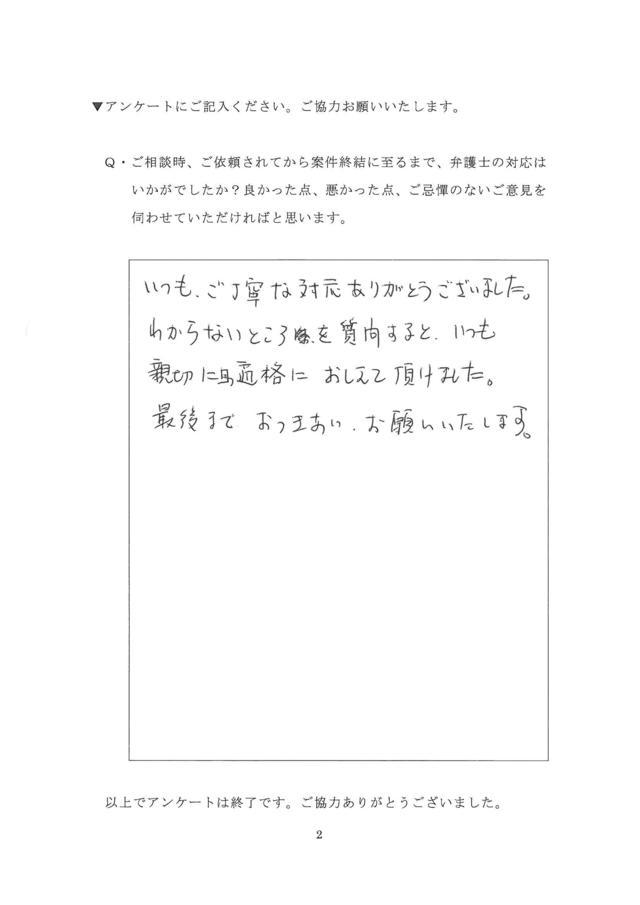 ▼アンケートにご記入ください。ご協力お願いいたします。
Q・ご相談時、ご依頼されてから案件終結に至るまで、弁護士の対応は
いかがでしたか？良かった点、悪かった点、ご忌憚のないご意見を
伺わせていただければと思います。
いつも、ご丁寧な対応ありがとうございました。
わからないところを質問すると、いつも
親切に適格に おしえて頂けました。
最後まで おつきあい、お願いいたします。
以上でアンケートは終了です。ご協力ありがとうございました。
2